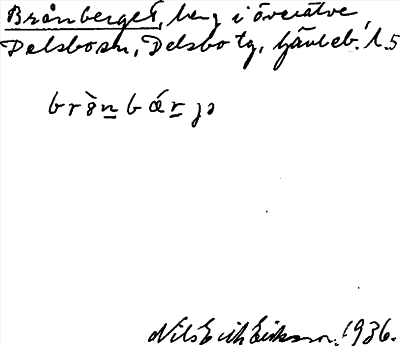 Brånberget, berg i överätve
Delsbosn, Delsbo tg, Gävleb. l.
brònbárjə
Nils Erik Eriksson, 1936.